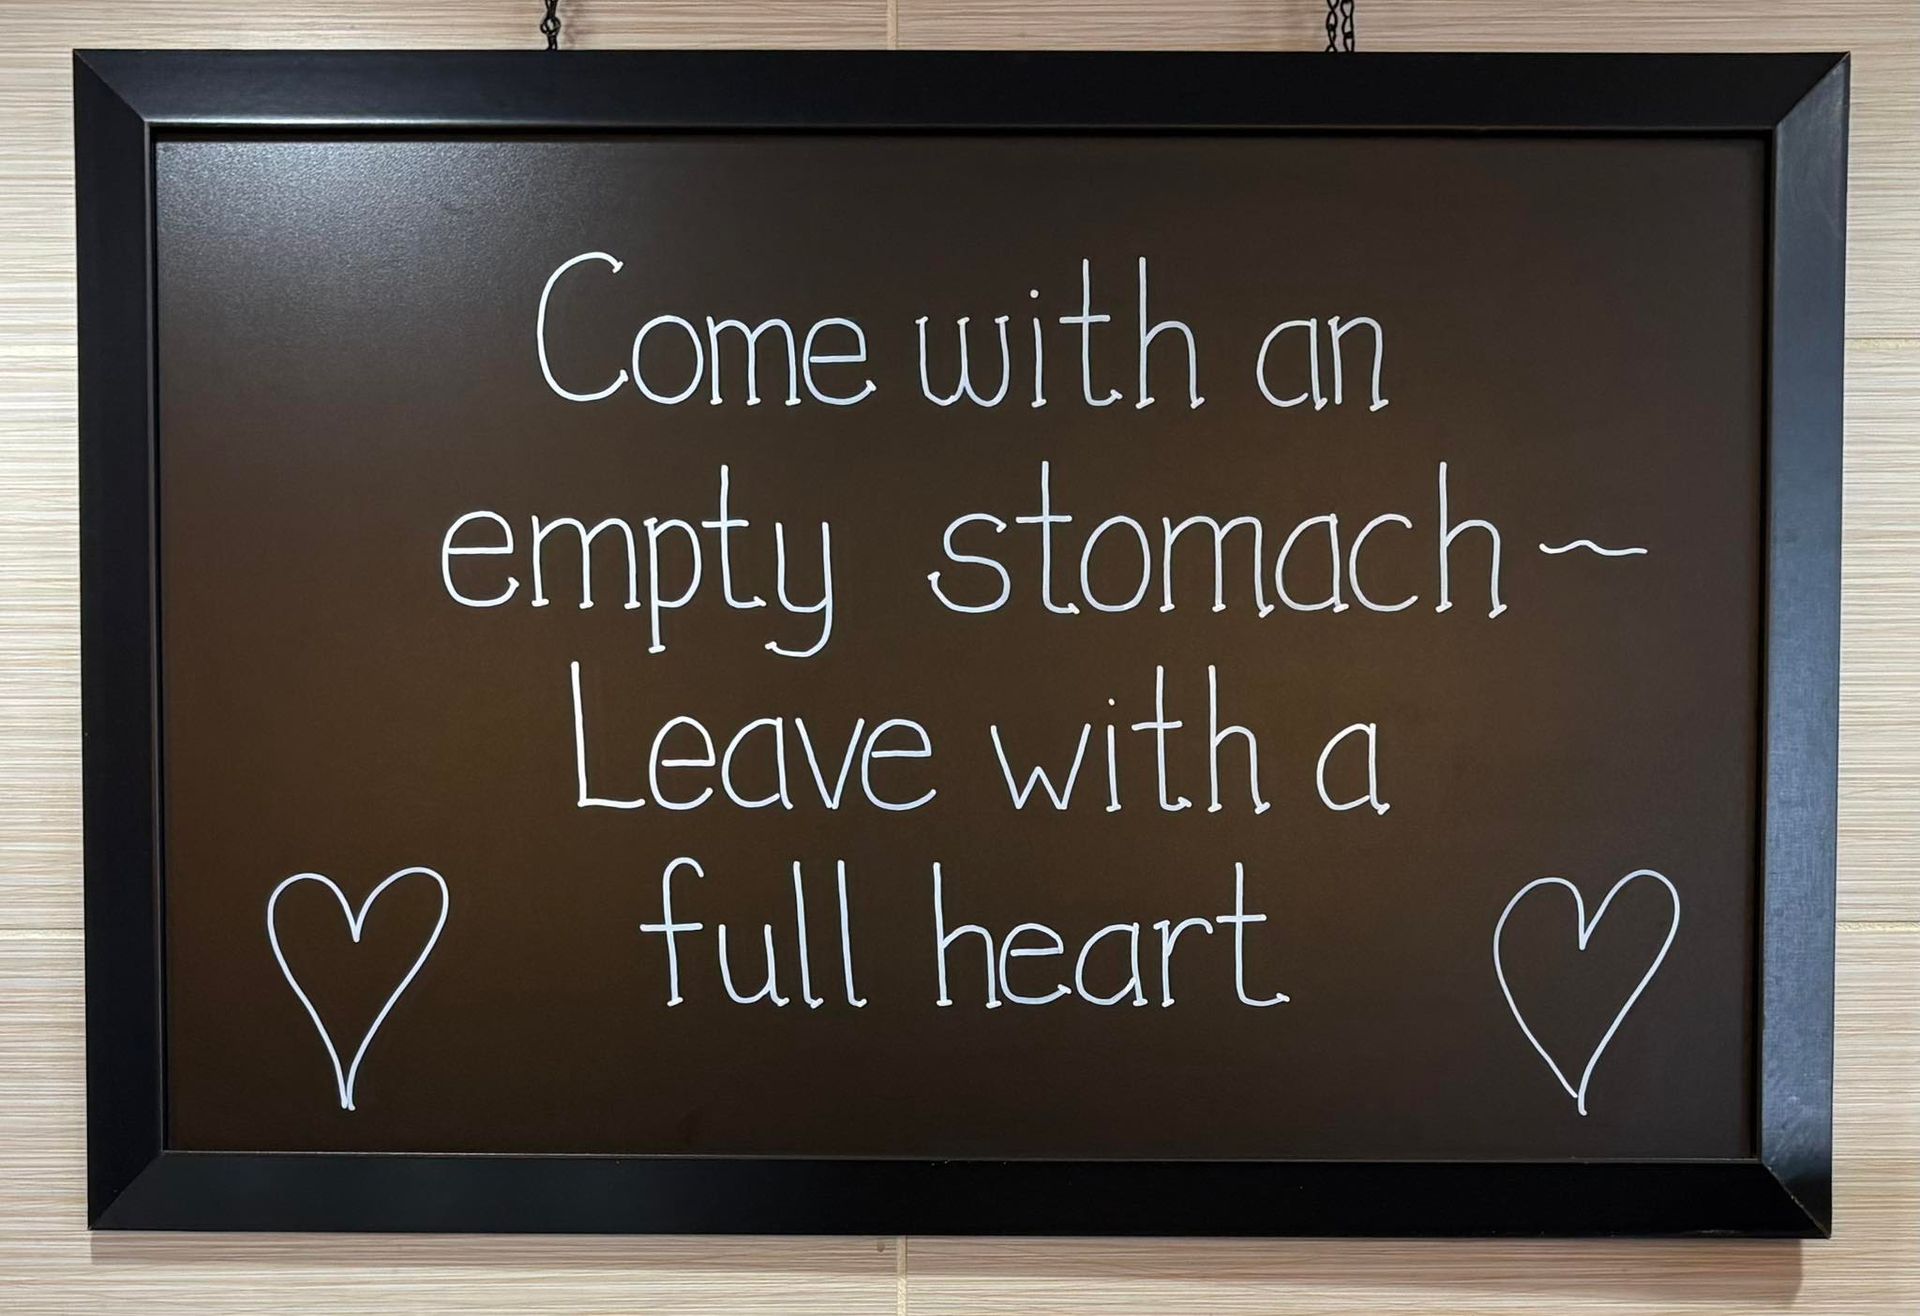 Come with an
empty stomach~
Leave with a
full heart